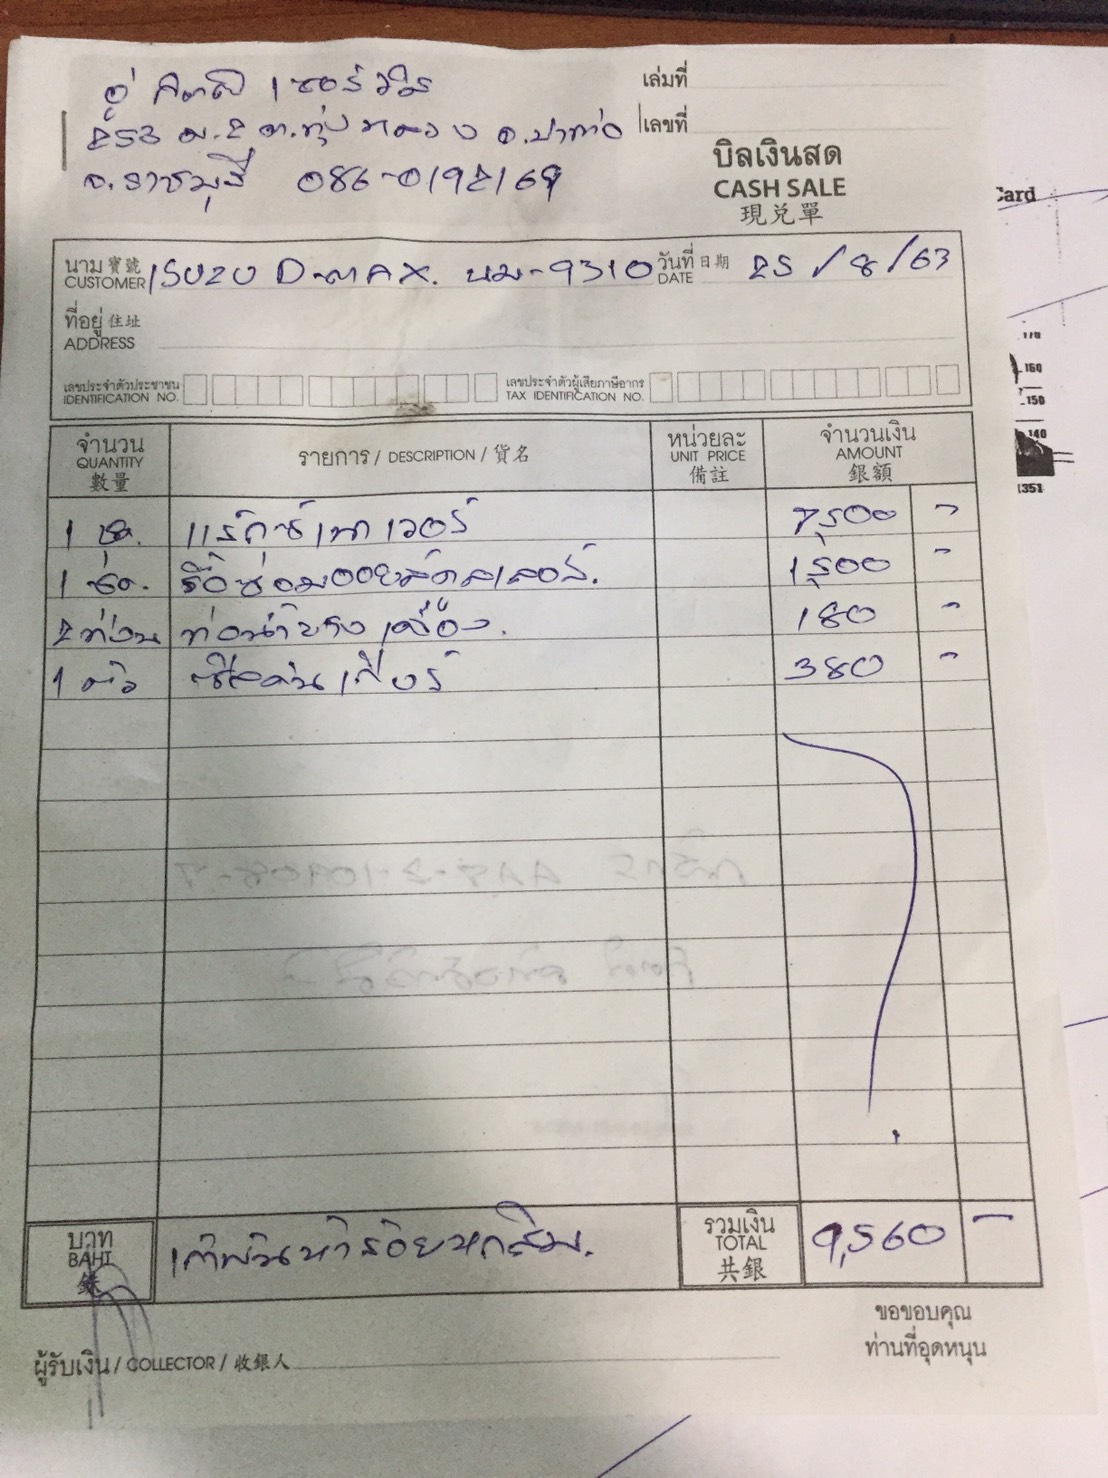 อู่ กิตติ เซอร์วิส
เล่มที่
253 ม.2 ต.ทุ่งหลวง อ.ปากท่อ
เลขที่
จ.ราชบุรี 086-0192169
บิลเงินสด
CASH SALE
現兌單
Card
นาม 寶號 CUSTOMER ISUZU D-MAX. นม-9310 วันที่ 日期 DATE 25/8/63
ที่อยู่ 住址
ADDRESS
เลขประจำตัวประชาชน
IDENTIFICATION NO.
เลขประจำตัวผู้เสียภาษีอากร
TAX IDENTIFICATION NO.
170
160
150
140
1351
จำนวน QUANTITY 數量
รายการ / DESCRIPTION / 貨名
หน่วยละ UNIT PRICE 備註
จำนวนเงิน AMOUNT 銀額
1 ชุด. แร็คซ์เพาเวอร์ 7,500 -
1 ชุด. รื้อซ่อมออยล์คูลเลอร์. 1,500 -
2 ท่อน ท่อน้ำ เครื่อง. 180 -
1 ตัว เกียร์ 380 -
บาท BAHT 錢
เก้าพันห้าร้อยหกสิบ.
รวมเงิน TOTAL 共銀
9,560 -
ขอขอบคุณ
ท่านที่อุดหนุน
ผู้รับเงิน / COLLECTOR / 收銀人